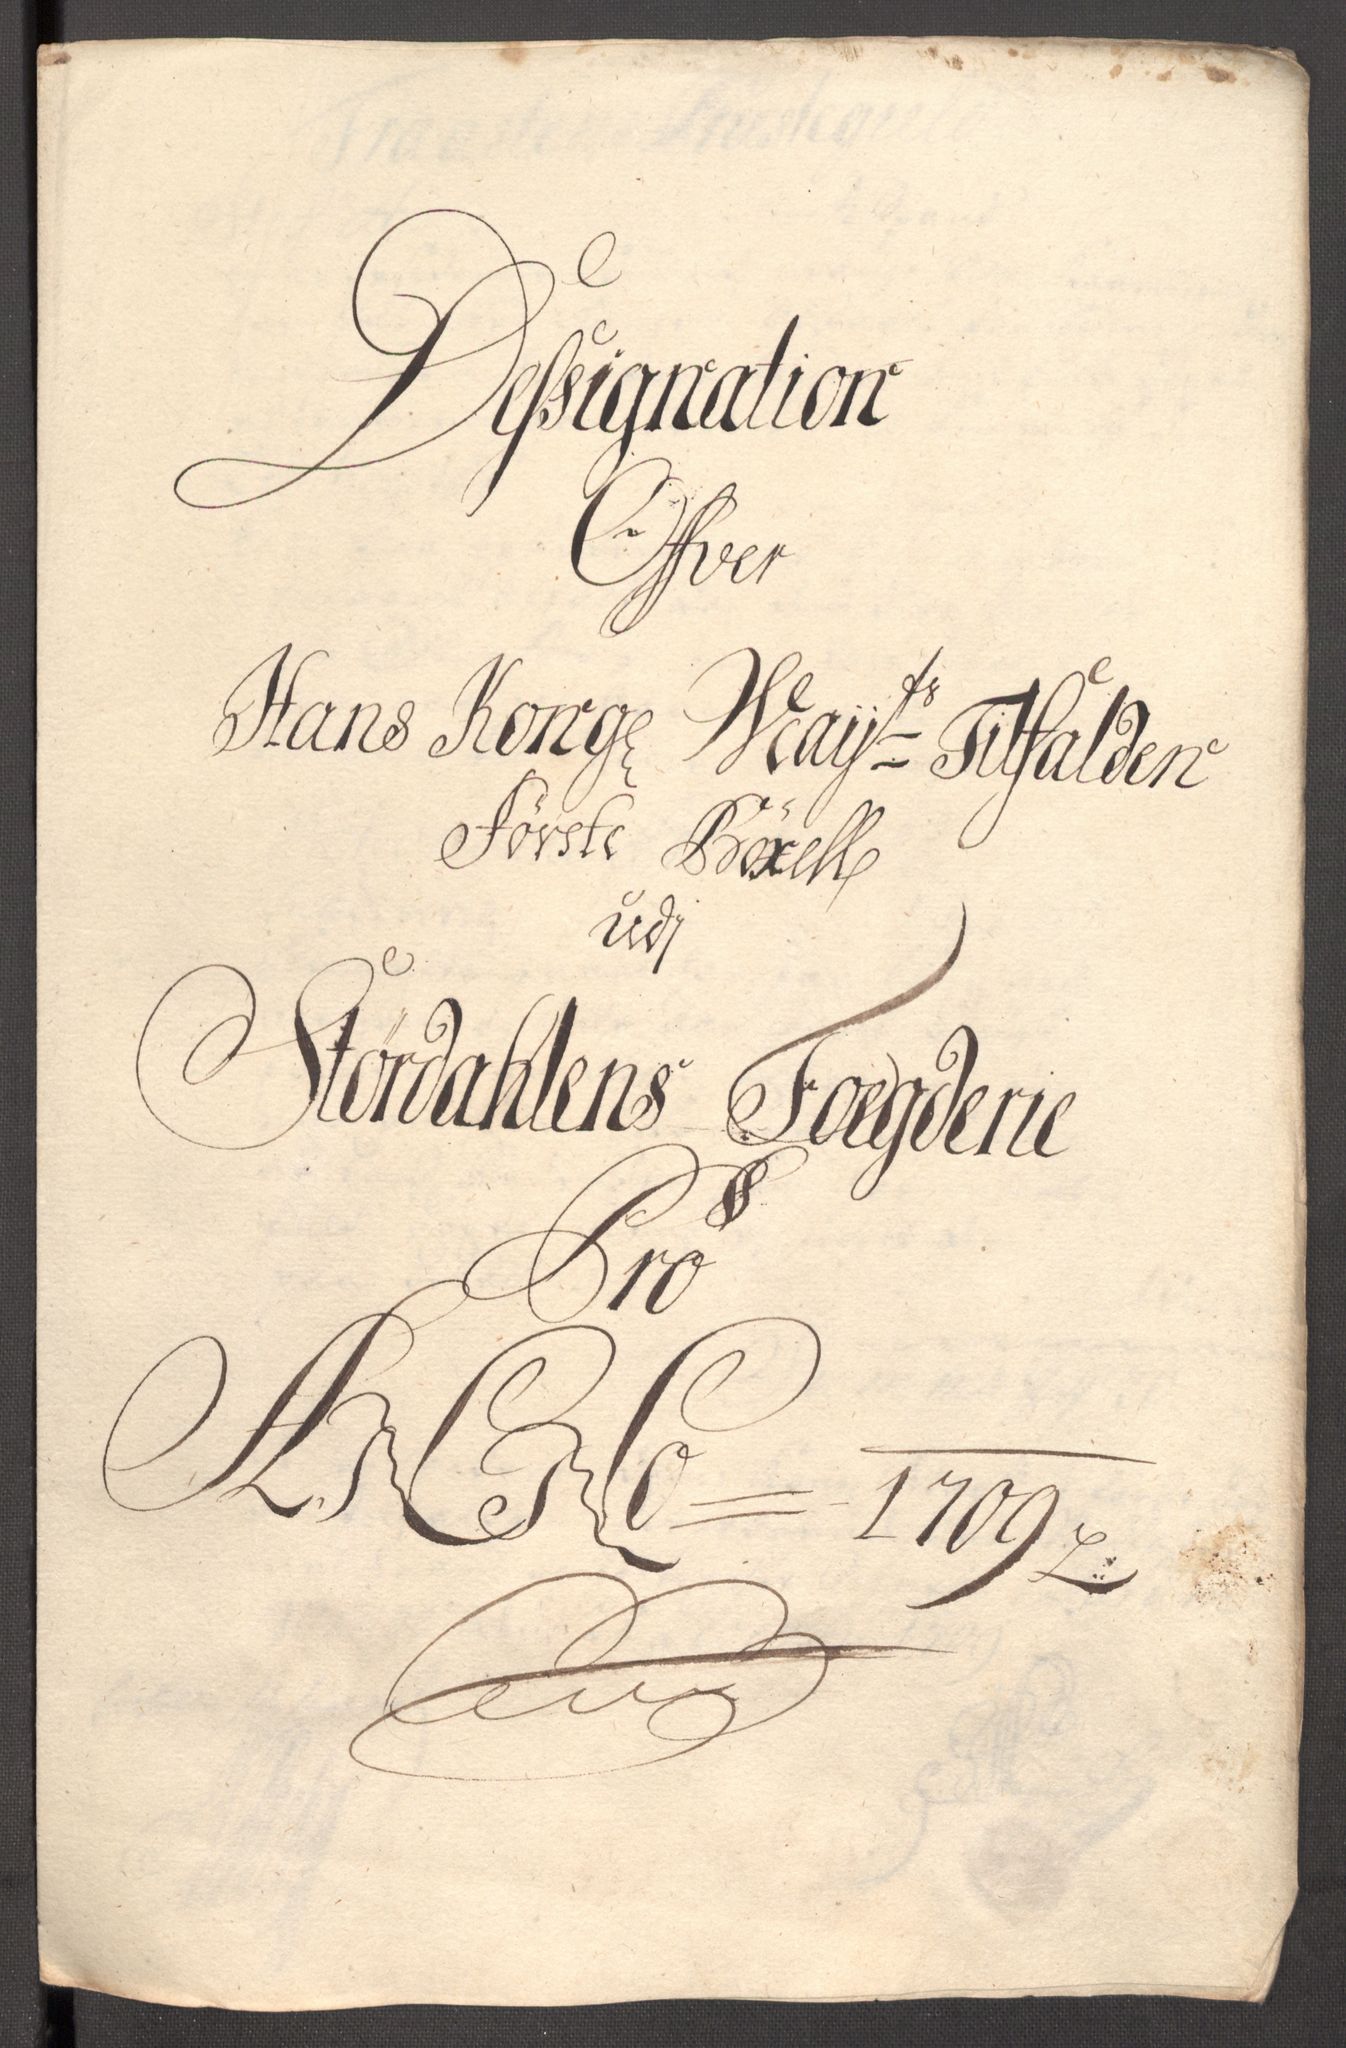 Desſsignation
Offver
Hans Kong: May:ts Tilfalden
Förste Böxell
udj
Størdahlens Foegderie
Pro
A̅n̅n̅o̅ = 1709